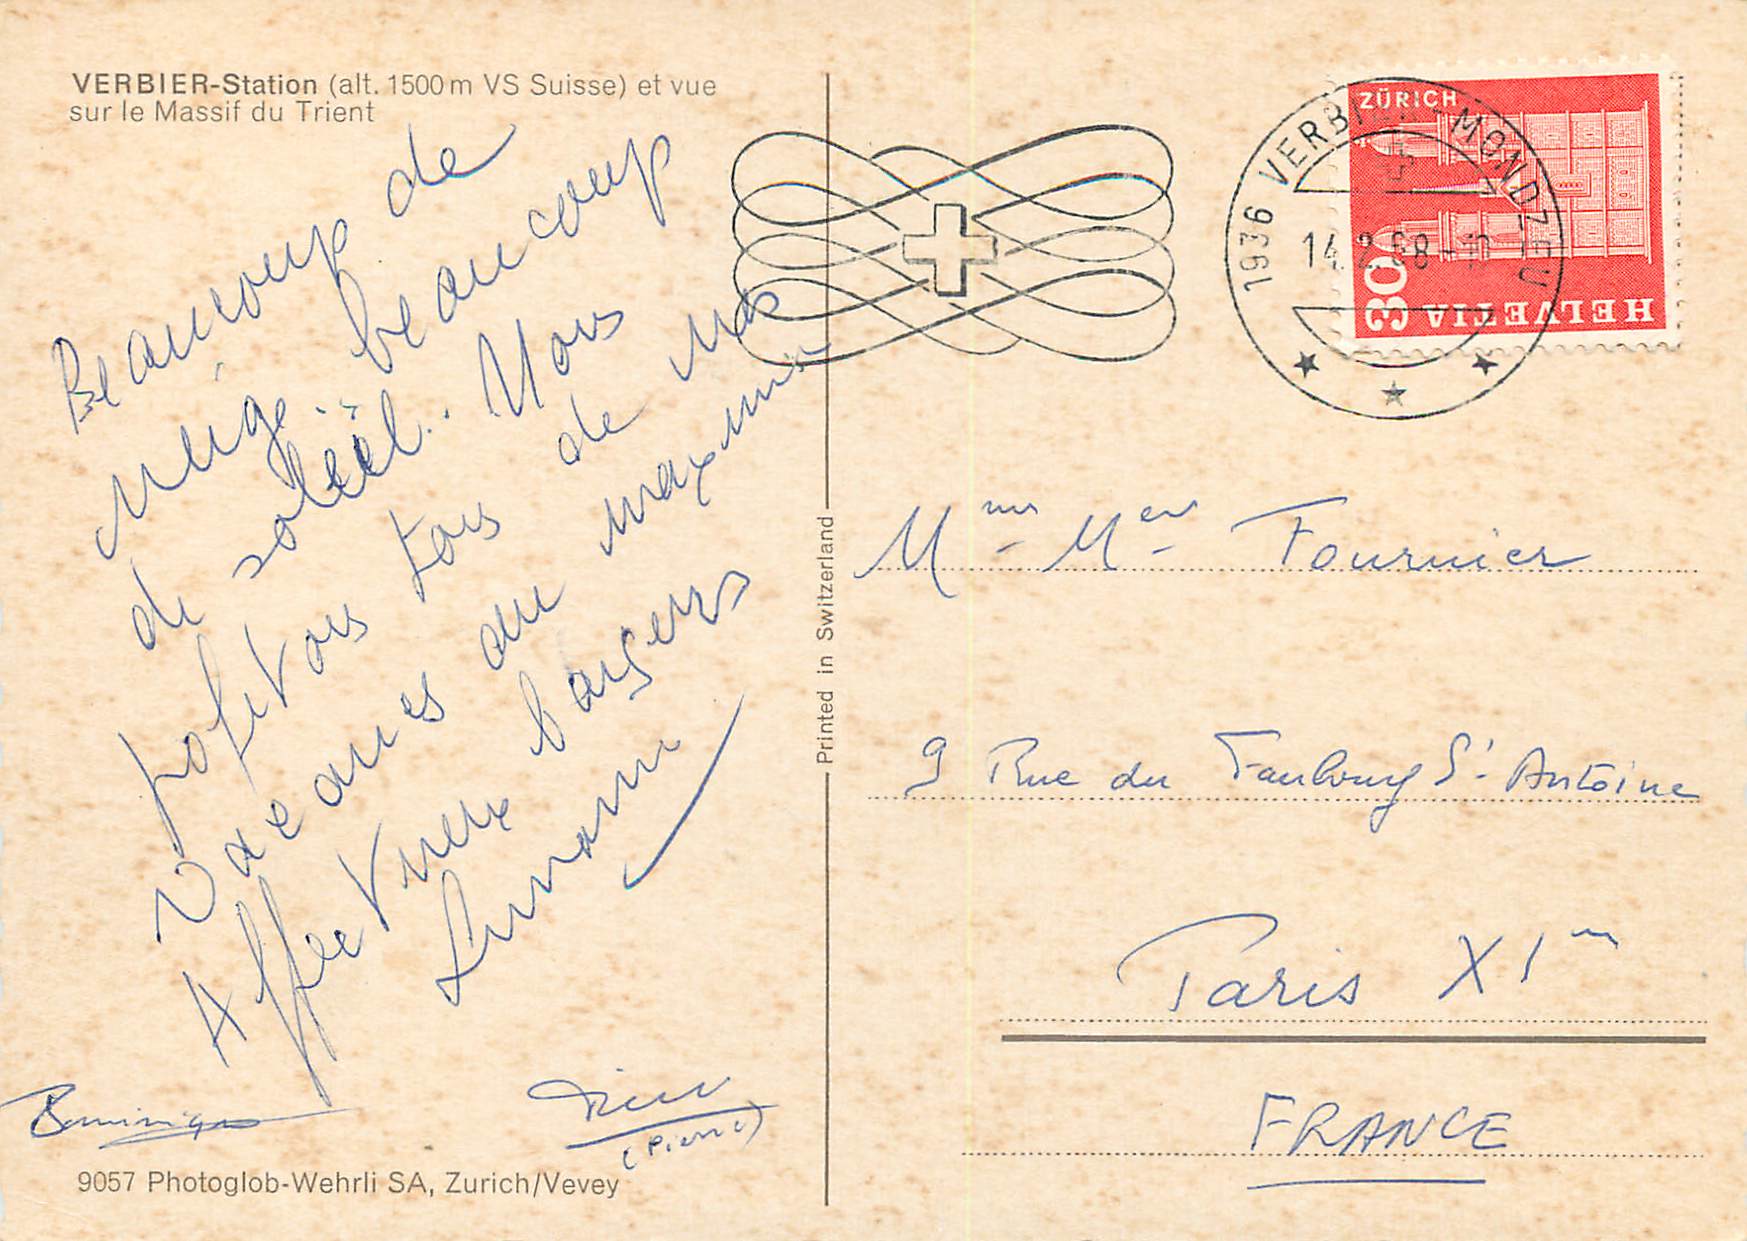 VERBIER-Station (alt. 1500 m VS Suisse) et vue
sur le Massif du Trient
Beaucoup de
neige beaucoup
de soleil. Nous
profitons tous de nos
vacances au maximum
Affectueux baisers
Dominique
(Pierre)
9057 Photoglob-Wehrli SA, Zurich/Vevey
Printed in Switzerland
1936 VERBIER-MONDZEU
14.2.68-
ZÜRICH
30
HELVETIA
Mme Mer Fournier
9 Rue du Faubourg St Antoine
Paris XIm
FRANCE